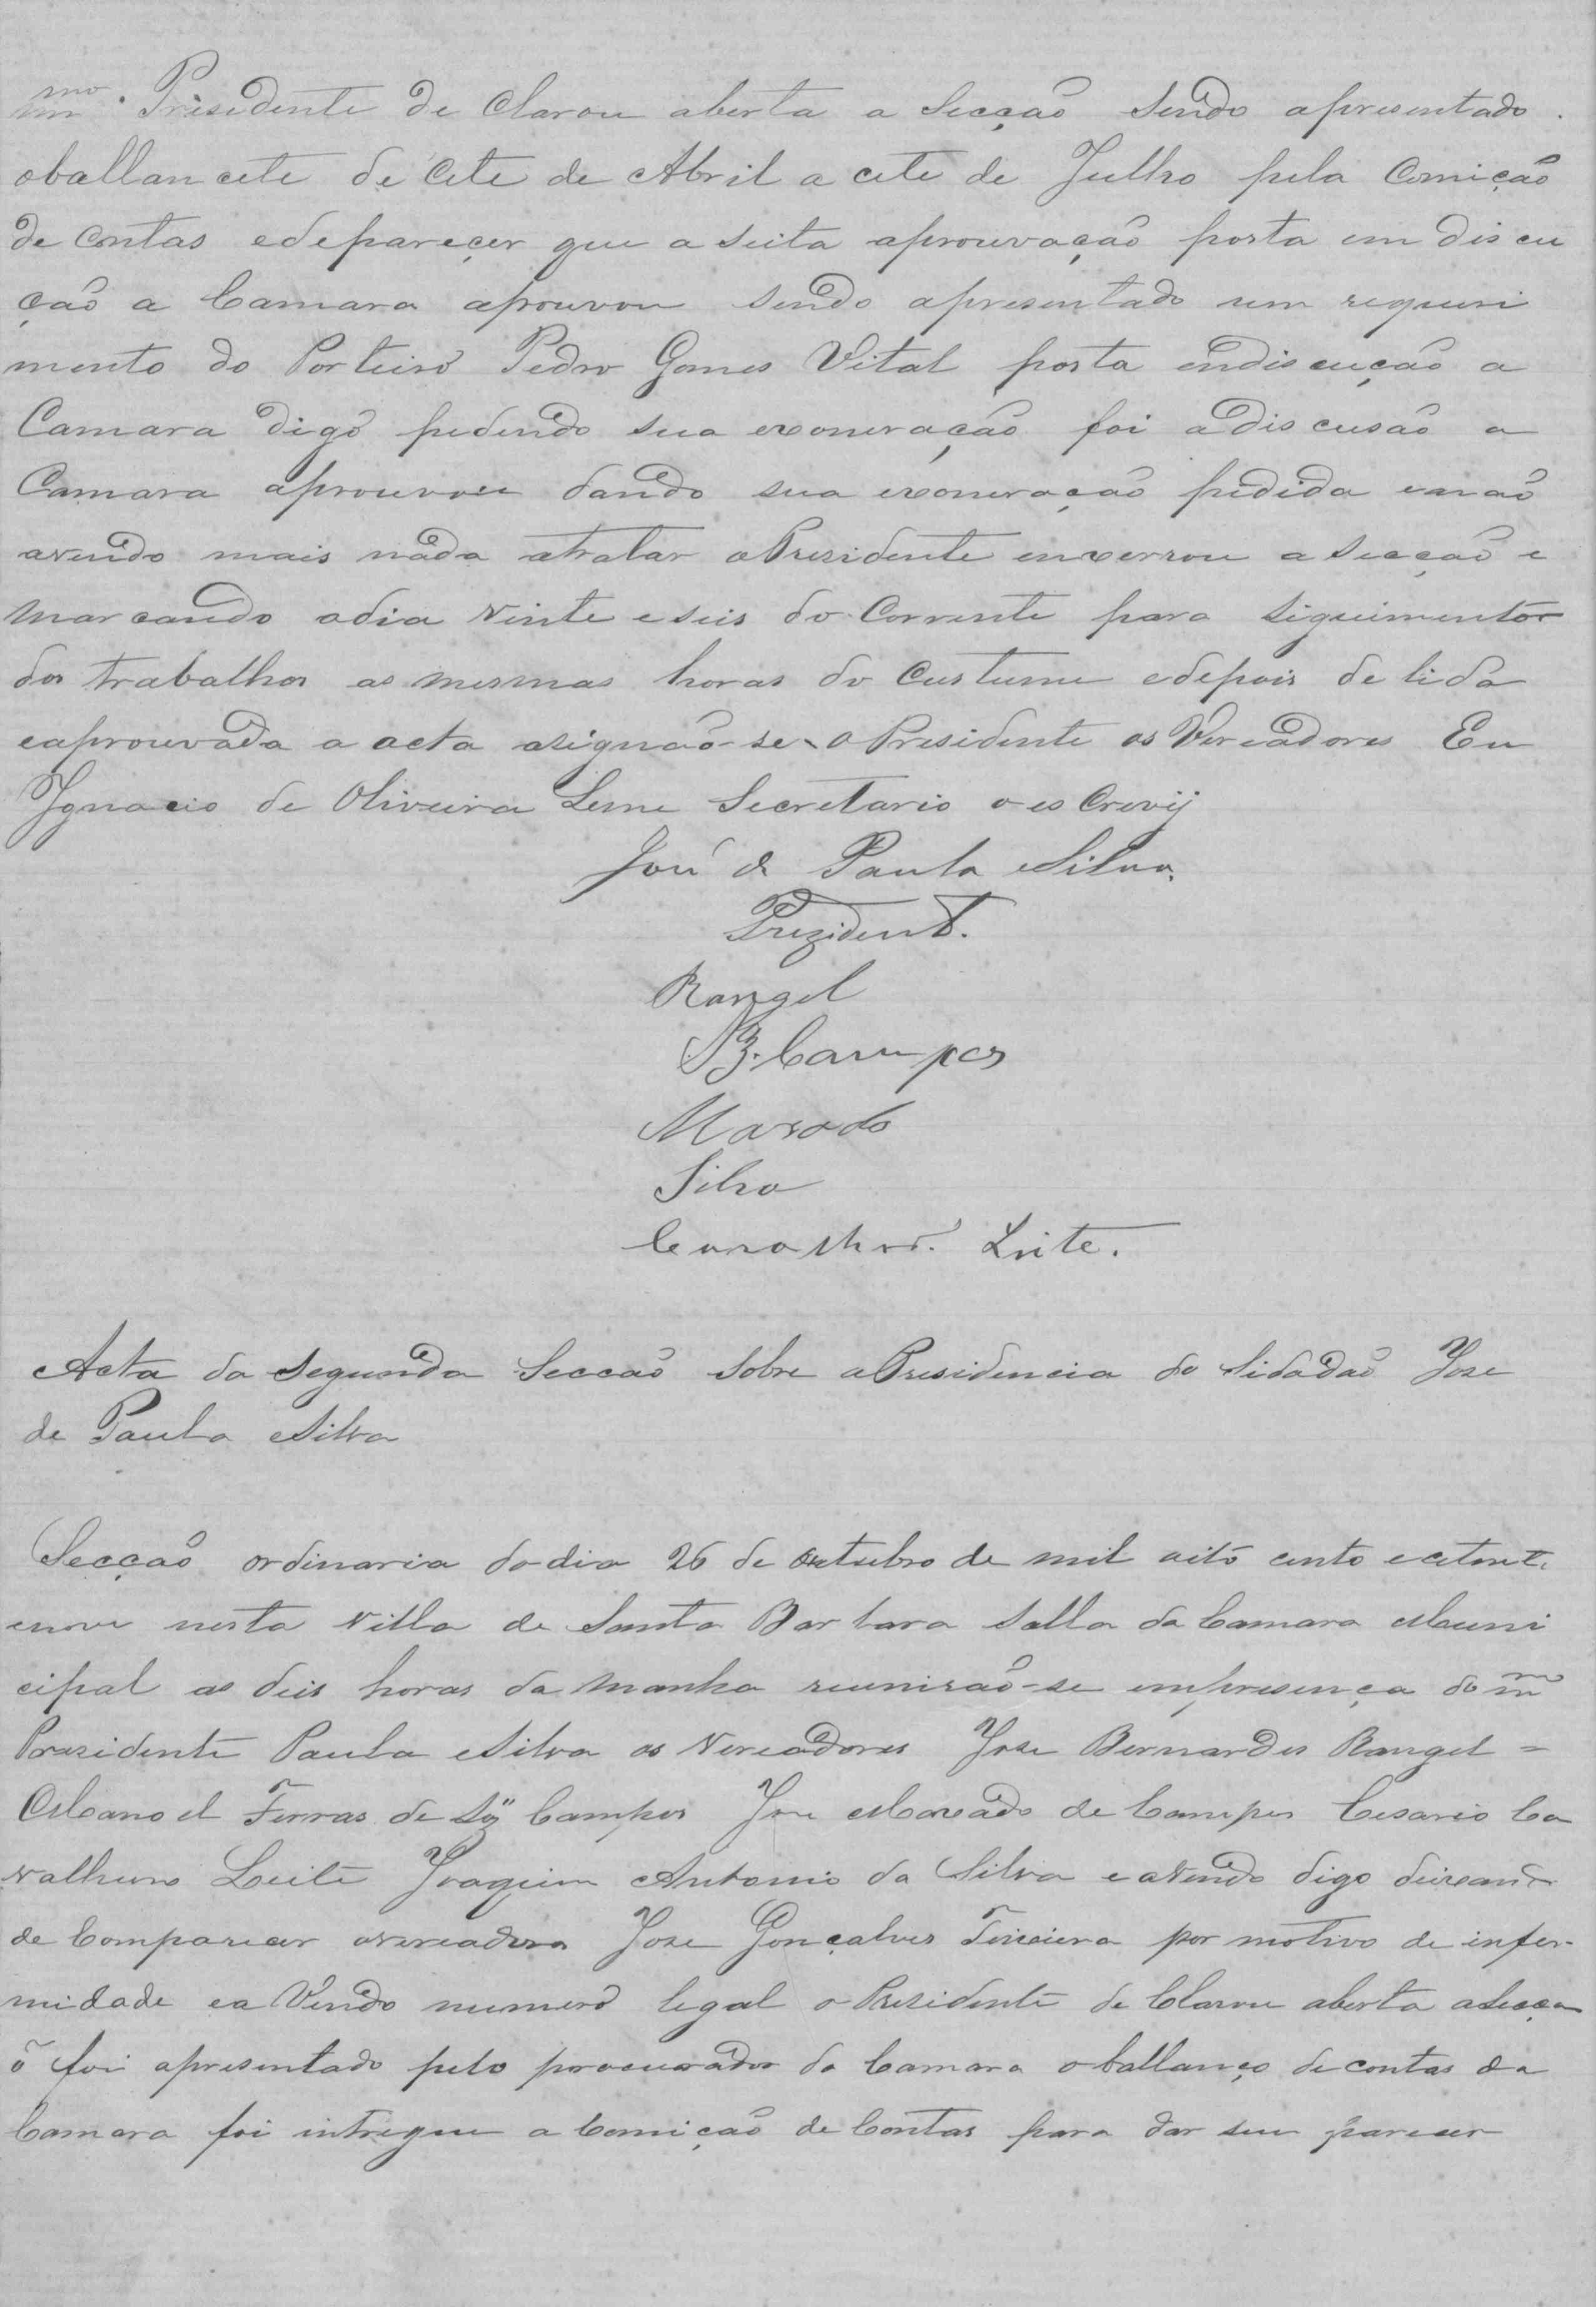 mmo. Presidente de Clarou aberta a Secção Sendo apresentado
oballancete de Cete de Abril a cete de Julho pela Comição
de Contas edepareçer que a seita aprouvação posta em discu
ção a Camara aprouvou sendo apresentado um requiri
mento do Porteiro Pedro Gomes Vital posta endiscução a
Camara digo pedendo sua exoneração foi adiscusão a
Camara aprouvou dando sua exoneração pedida enão
avendo mais nada atratar oPresidente enxerrou a secção e
marcando odia vinte e seis do Corrente para siguimentos
dos trabalhos as mesmas horas do Custume edepois de lida
eaprouvada a acta asignão-se o Presidente os Vereadores Eu
Ignacio de Oliveira Leme Secretario o es Crevij
José de Paula e Silva.
Prezident.
Rangel
Campos
Maxado
Silva
Leite.
Acta da Segunda Seccão Sobre aPresidencia do Sidadão Joze
de Paula e Silva
Secção ordinaria do dia 26 de Outubro de mil oito cento e cetent.
enove nesta Villa de Santa Barbara Salla da Camara Muni
cipal as deis horas da manha reunirão-se empresença do mmo
Prezidente Paula e Silva os Vereadores Joze Bernardes Rangel =
Manoel Ferras de Campos Joze Maxado de Campos Cesario Ca
valhero Leite Joaquim Antonio da Silva e avendo digo deixando
de Comparecer overeadore Joze Gonçalves Teixeira por motivo de infer-
midade ea Vendo numero legal o Presidente de Clarou aberta aSecça
õ foi apresentado pelo porocurador da Camara oballanço de contas da
Camara foi intregue a Comição de Contas para dar seu parecer